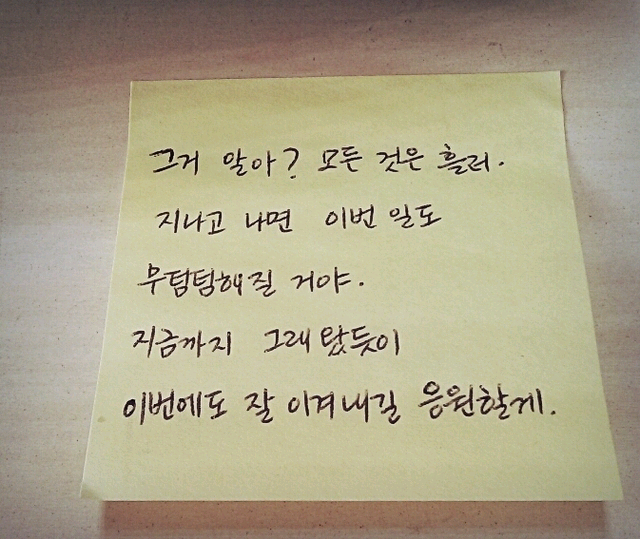 그거 알아? 모든 것은 흘러.
지나고 나면 이번 일도
무덤덤해질 거야.
지금까지 그래 왔듯이
이번에도 잘 이겨내길 응원할게.